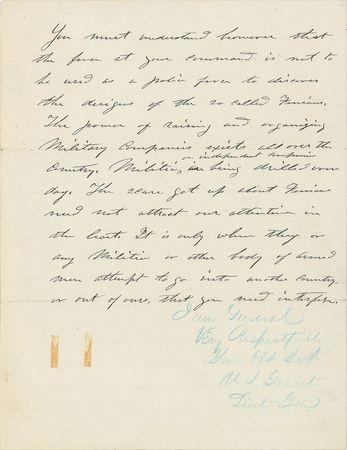 You must understand however that
the force at your command is not to
be used as a police force to discover
the designs of the so called Fenians.
The power of raising and organizing
Military Companies exists all over the
or independent companies
Country. Militia, are being drilled every
day. The scare got up about Fenians
need not attract our attention in
the least. It is only when they or
any Militia or other body of armed
men attempt to go into another country,
or out of ours, that you need interfere.
I am General
Very Respectfully
Your obt. Svt.
U. S. Grant
Lieut. Gen.